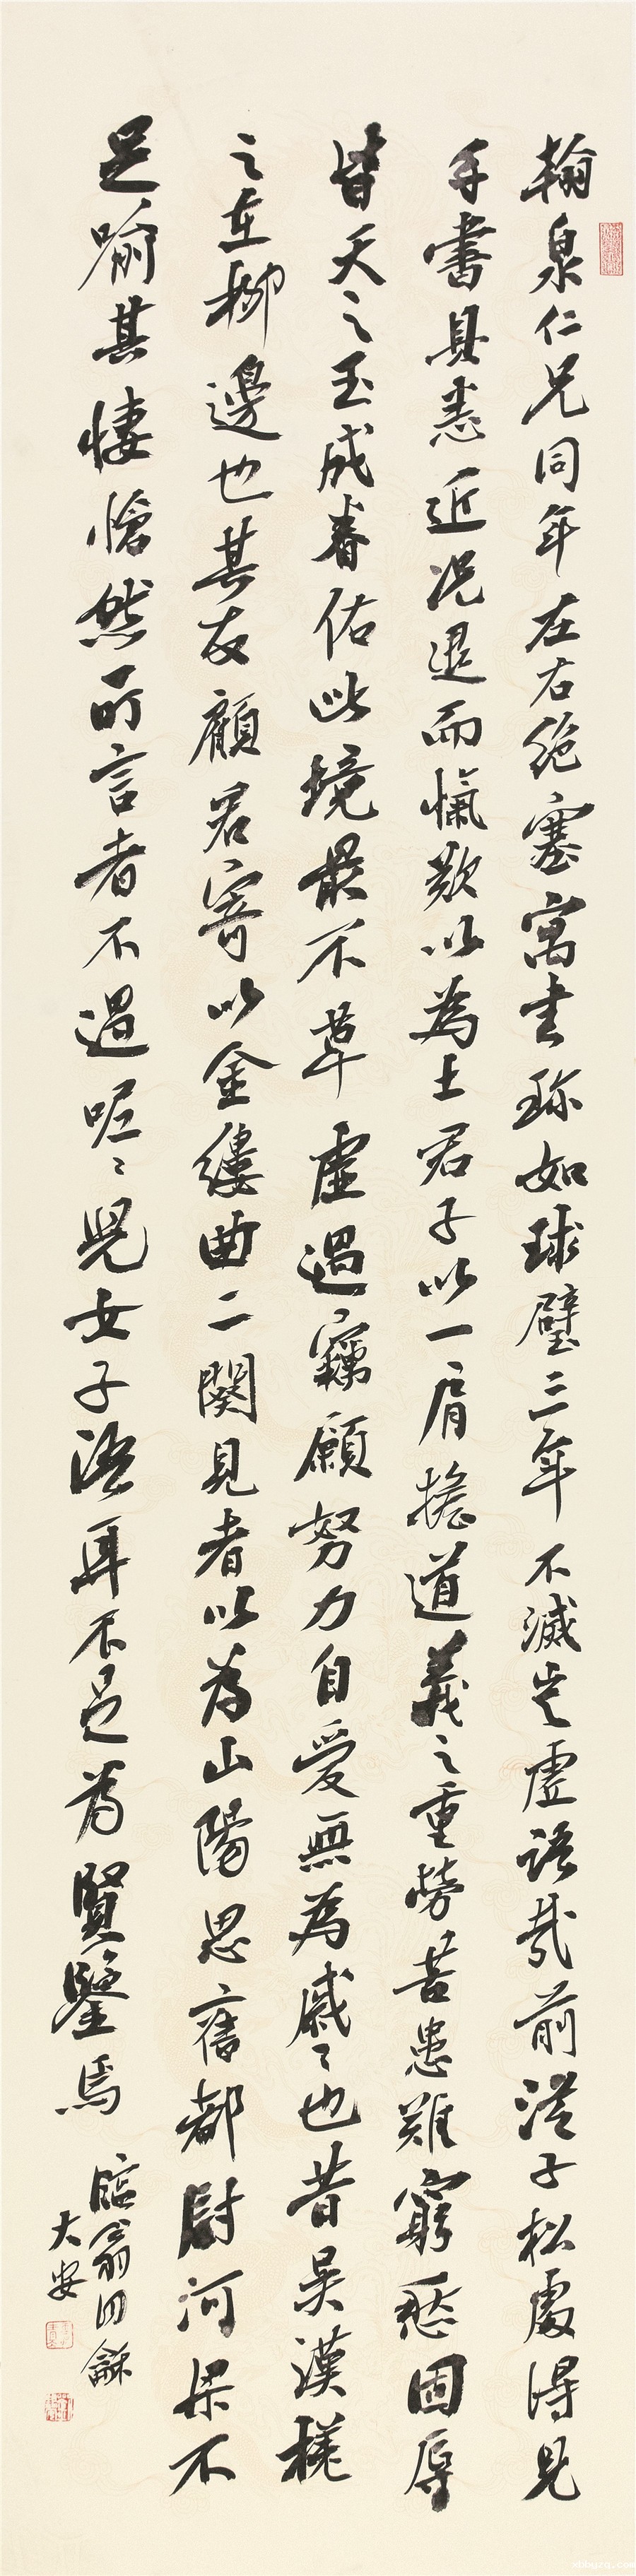 翰泉仁兄同年左右絶塞寓書珎如球璧三年不滅豈虛語哉前從子松處得見
手書具悉近况退而愾歎以為士君子以一肩擔道義之重勞苦患難窮愁困辱
皆天之玉成眷佑此境最不草虛過竊願努力自愛無為戚〻也昔吴漢槎
之在柳邊也其友顧君寄以金縷曲二闋見者以為山陽思舊都尉河梁不
足喻其悽愴然所言者不過呢〻兒女子語耳不足為賢鑒焉
臨翁同龢
大安